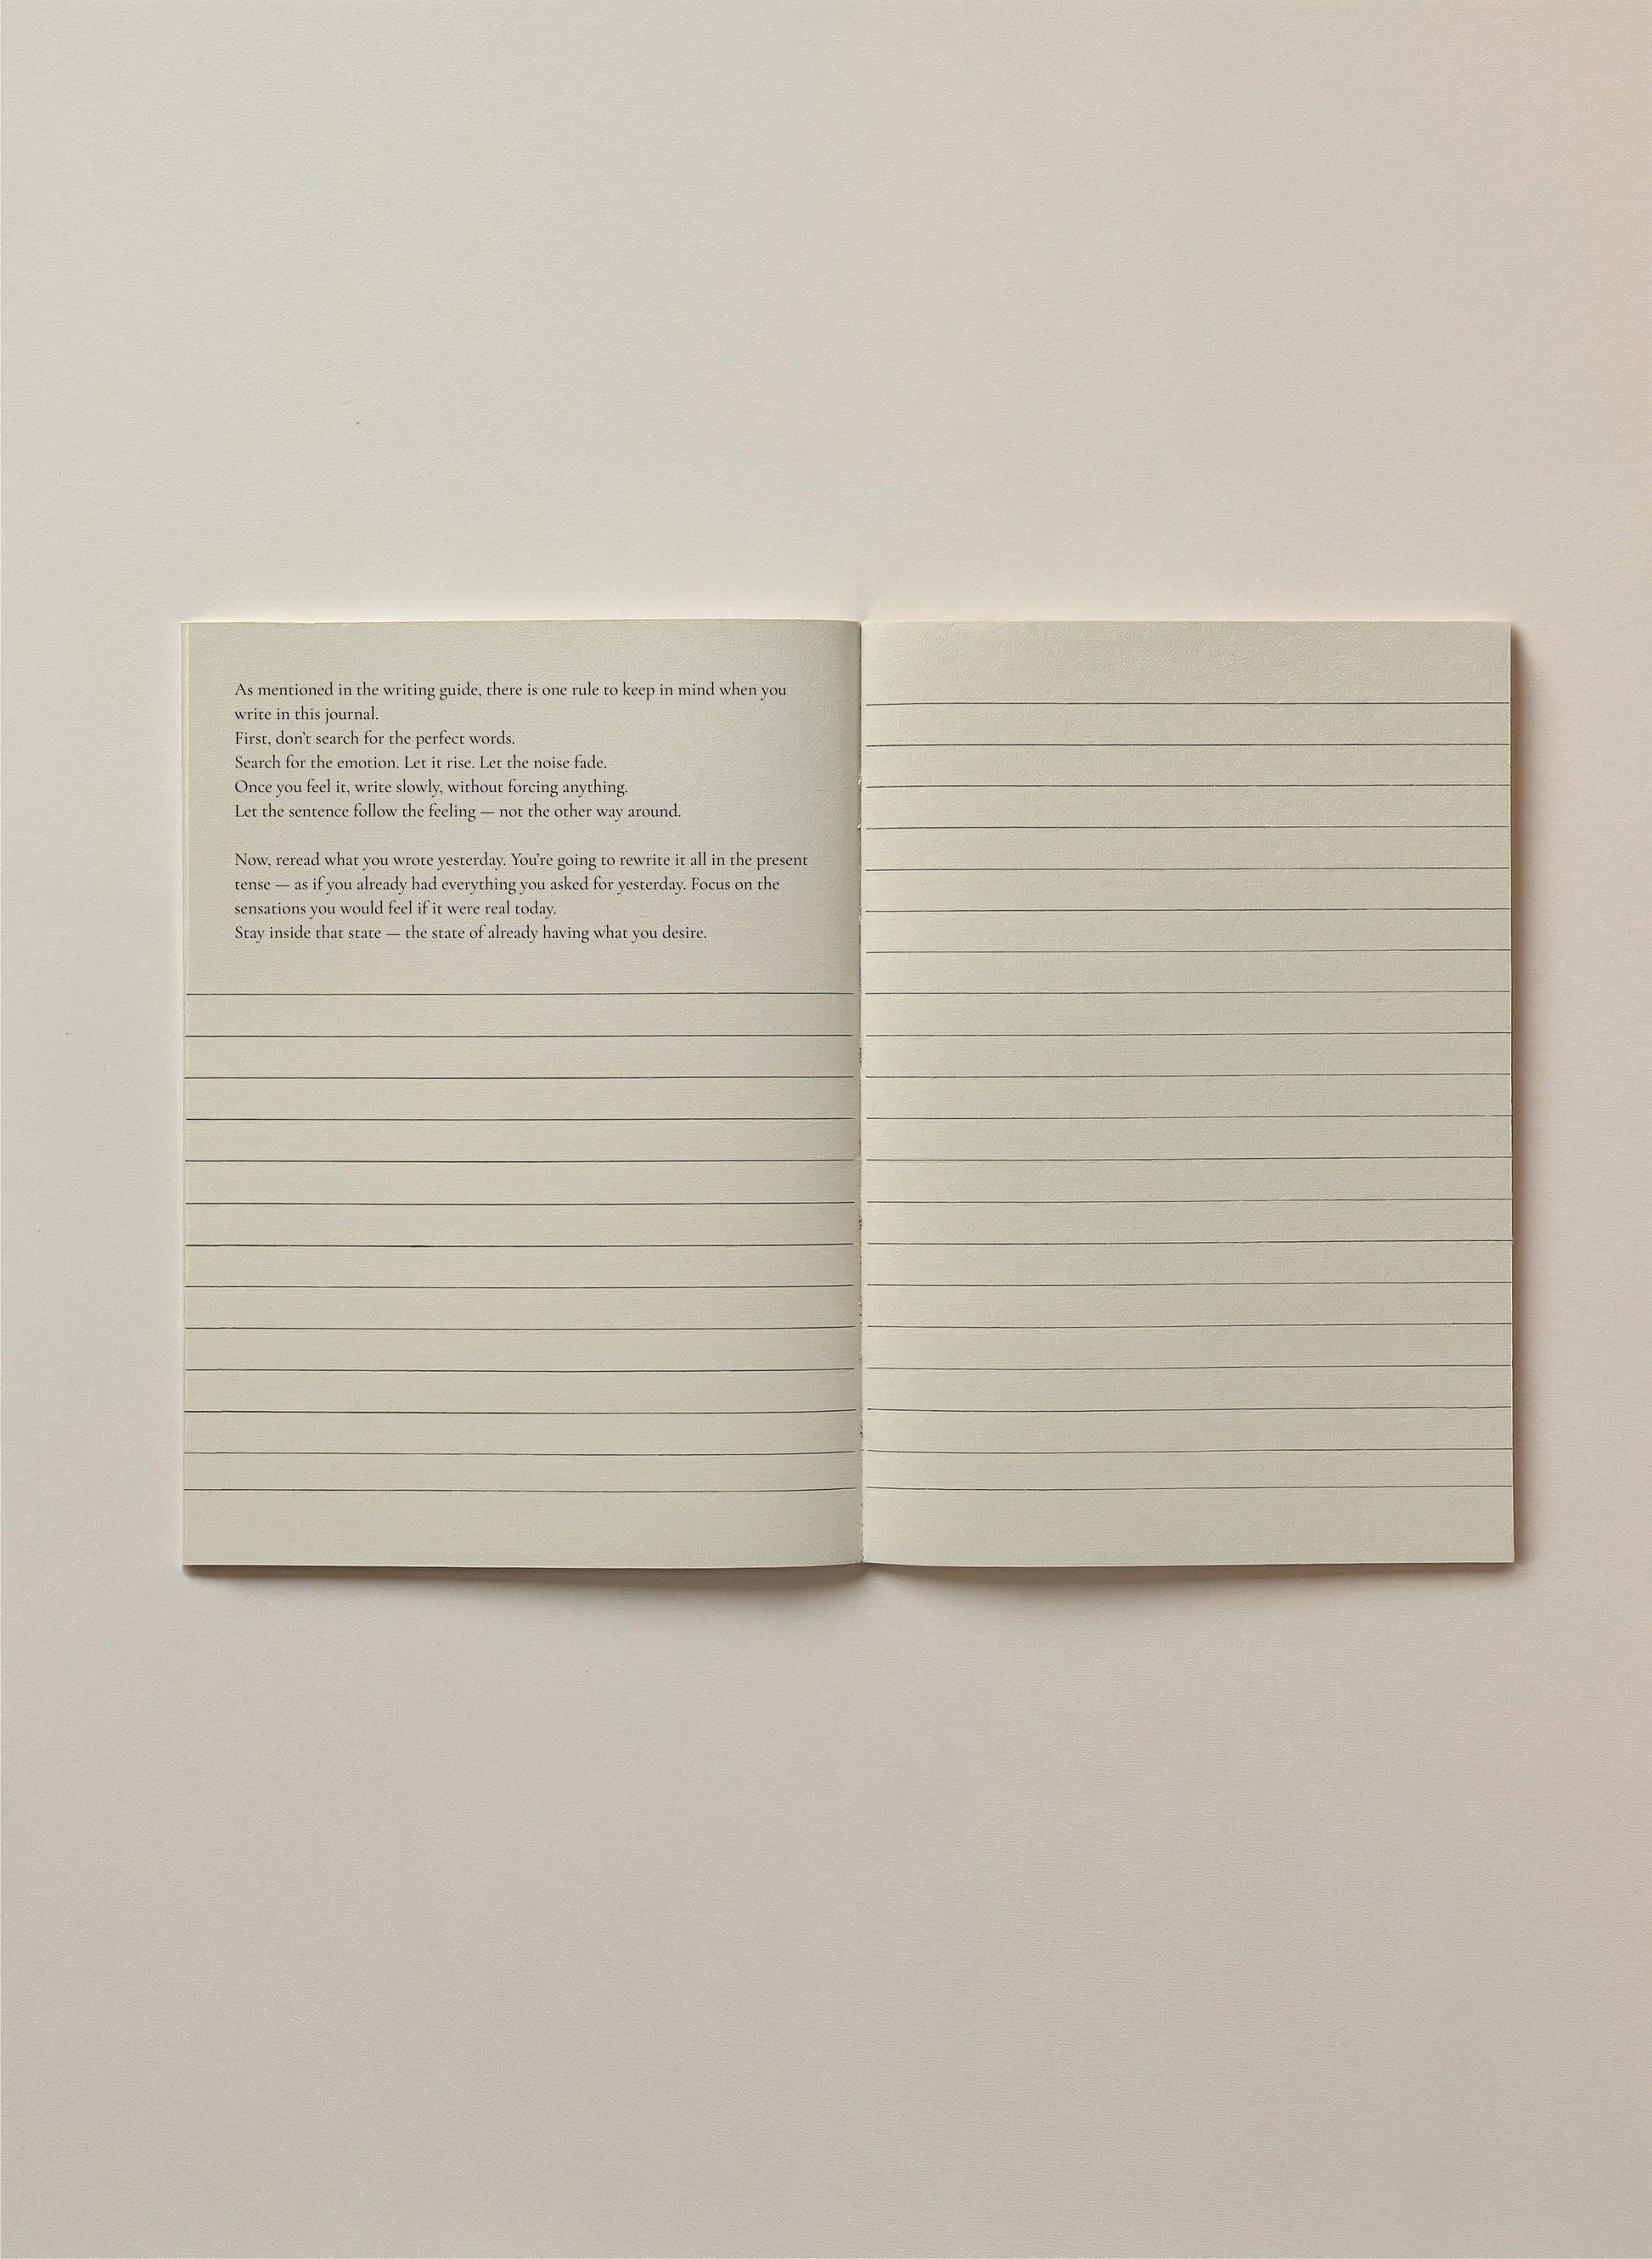 As mentioned in the writing guide, there is one rule to keep in mind when you
write in this journal.
First, don’t search for the perfect words.
Search for the emotion. Let it rise. Let the noise fade.
Once you feel it, write slowly, without forcing anything.
Let the sentence follow the feeling — not the other way around.

Now, reread what you wrote yesterday. You’re going to rewrite it all in the present
tense — as if you already had everything you asked for yesterday. Focus on the
sensations you would feel if it were real today.
Stay inside that state — the state of already having what you desire.